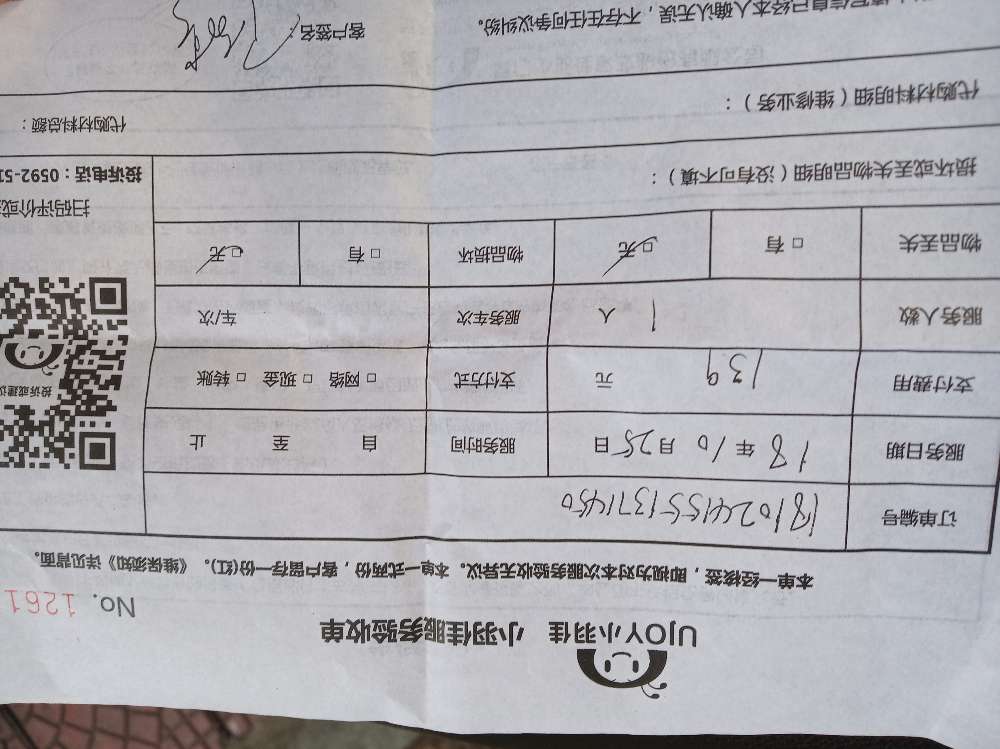 UJOY小羽佳 小羽佳服务验收单
No. 1261
本单一经核签，即视为对本次服务验收无异议。本单一式两份，客户留存一份(红)。《维保须知》详见背面。
订单编号 1810241551371450
服务日期 18 年 10 月 25 日 服务时间 自 至 止
支付费用 139 元 支付方式 □ 网络 □ 现金 □ 转账
投诉或建议
服务人数 1 人 服务车次 车/次
物品丢失 □ 有 □ 无 物品损坏 □ 有 □ 无
扫码评价或
损坏或丢失物品明细（没有可不填）：
投诉电话：0592-51
代购材料明细（维修业务）：
代购材料总额：
信息已经本人确认无误，不存在任何争议纠纷。
客户签名：